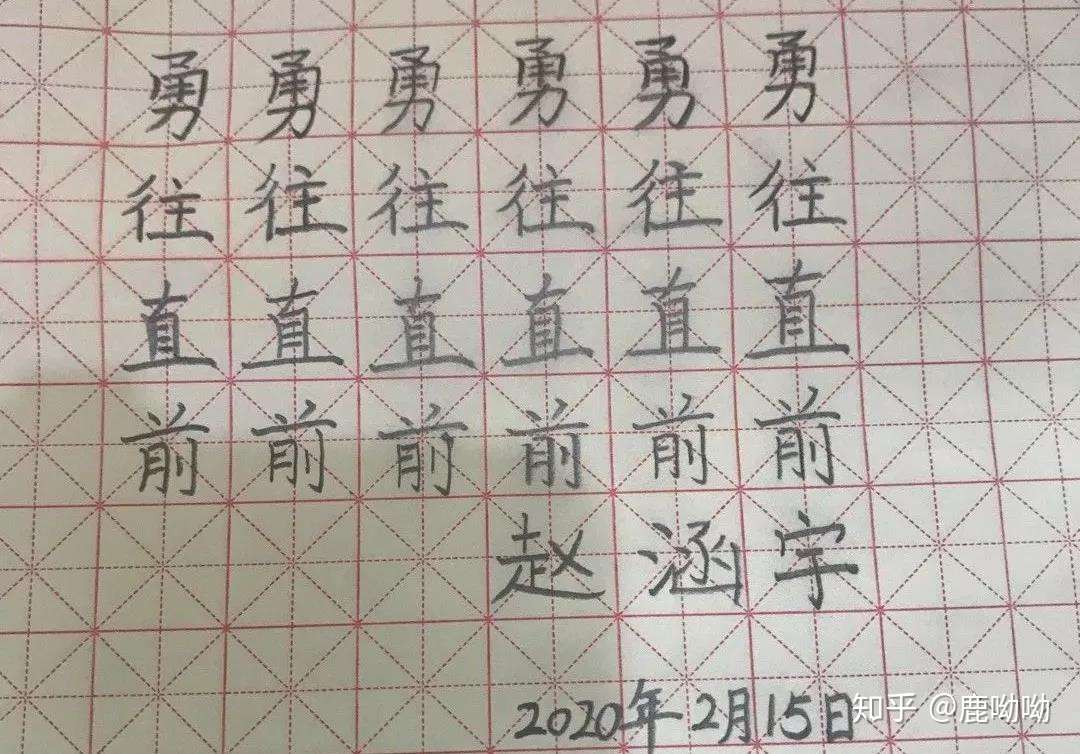 勇勇勇勇勇勇
往往往往往往
直直直直直直
前前前前前前
赵涵宇
2020年2月15日
知乎 @鹿呦呦